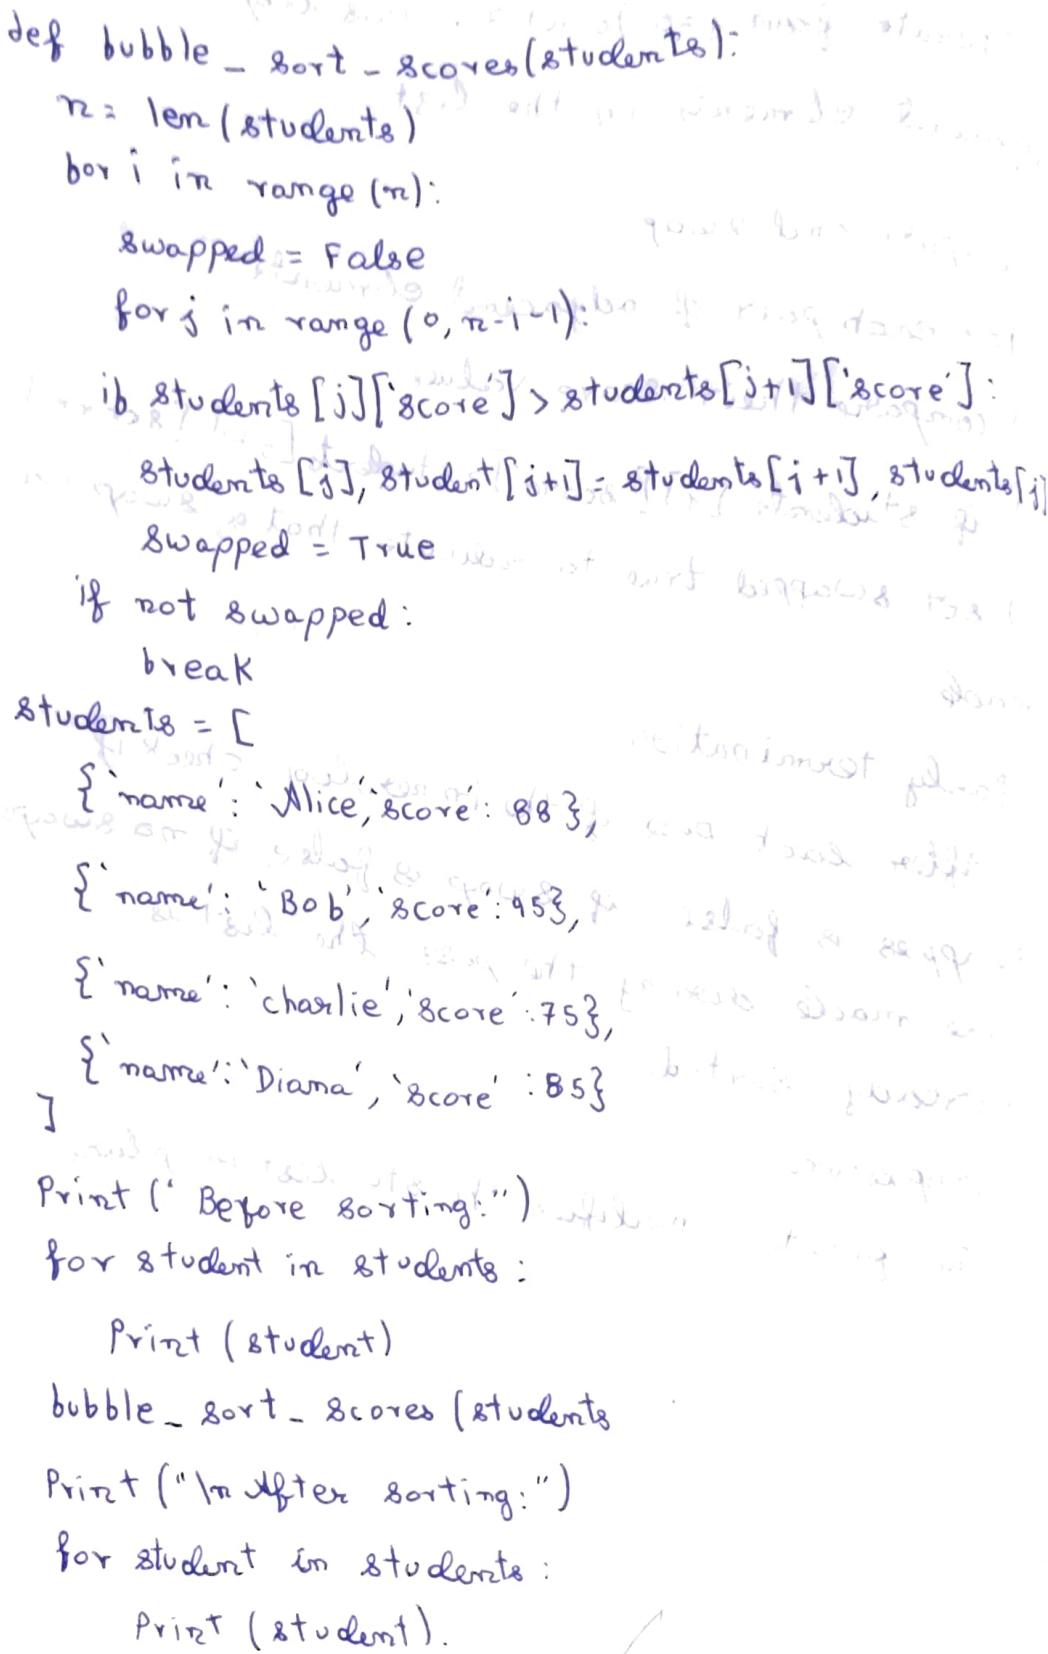 def bubble_sort_scores(students):
n = len(students)
for i in range(n):
swapped = False
for j in range(0, n-i-1):
if students[j]['score'] > students[j+1]['score']:
students[j], student[j+1] = students[j+1], students[j]
swapped = True
if not swapped:
break
students = [
{'name': 'Alice,'score': 88},
{'name': 'Bob', 'score': 95},
{'name': 'charlie', 'score': 75},
{'name': 'Diana', 'score': 85}
]
Print (' Before sorting:")
for student in students:
Print (student)
bubble_sort_scores (students
Print ("\n After sorting:")
for student in students:
Print (student).